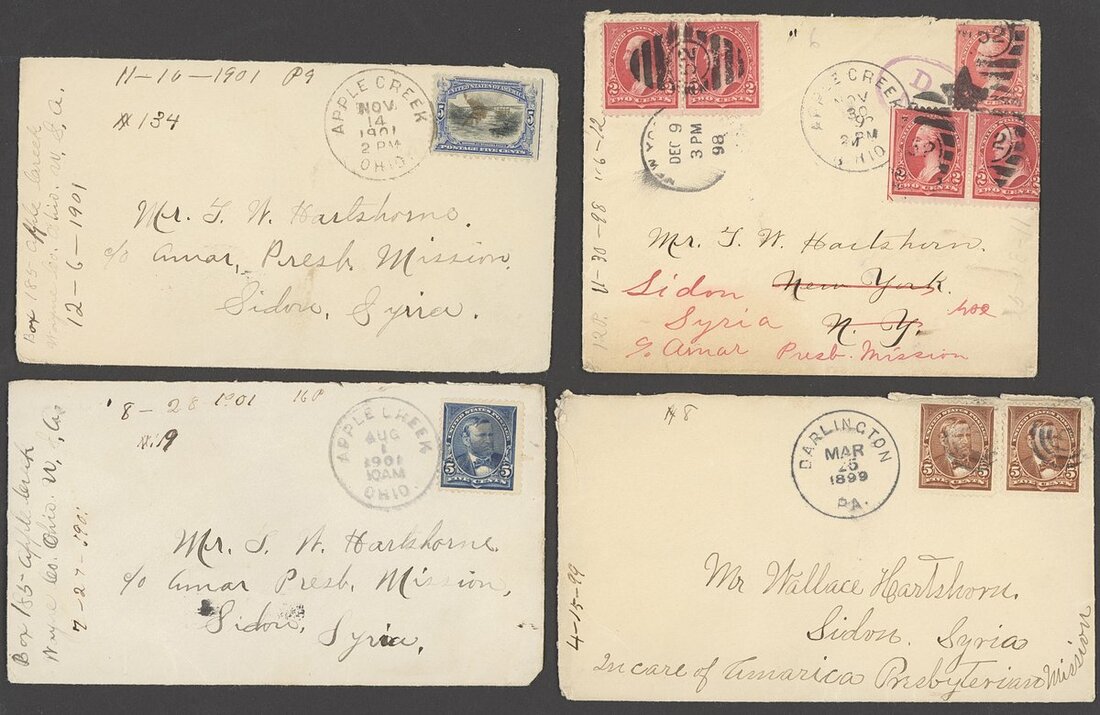 11-16-1901 P9
# 134
APPLE CREEK
NOV
14
1901
2 PM
OHIO.
UNITED STATES OF AMERICA
5 5
POSTAGE FIVE CENTS
Box 185-apple creek
Wayne Co. Ohio. U.S.A.
12-6-1901
Mr. T. W. Hartshorne.
c/o Amar, Presb. Mission.
Sidon, Syria.
2 2
TWO CENTS
TWO CENTS
NEW YO
DEC 9
3 PM
98
APPLE CREEK
NOV
30
2 PM
OHIO
D
52
2
TWO CENTS
11-30-98
Mr. T. W. Hartshorn.
Sidon New York.
Syria N. Y.
c/o Amar Presb. Mission
8-28 1901 16P
19
APPLE CREEK
AUG
1
1901
10AM
OHIO
UNITED STATES POSTAGE
5 5
FIVE CENTS
Box 185-apple creek
7-27-1901
Mr. T. W. Hartshorne
c/o Amar Presb. Mission,
Sidon, Syria,
# 8
DARLINGTON
MAR
25
1899
PA.
5 5
FIVE CENTS
5 5
FIVE CENTS
4-15-99
Mr Wallace Hartshorn.
Sidon. Syria
In care of Amarica Presbyterian Mission